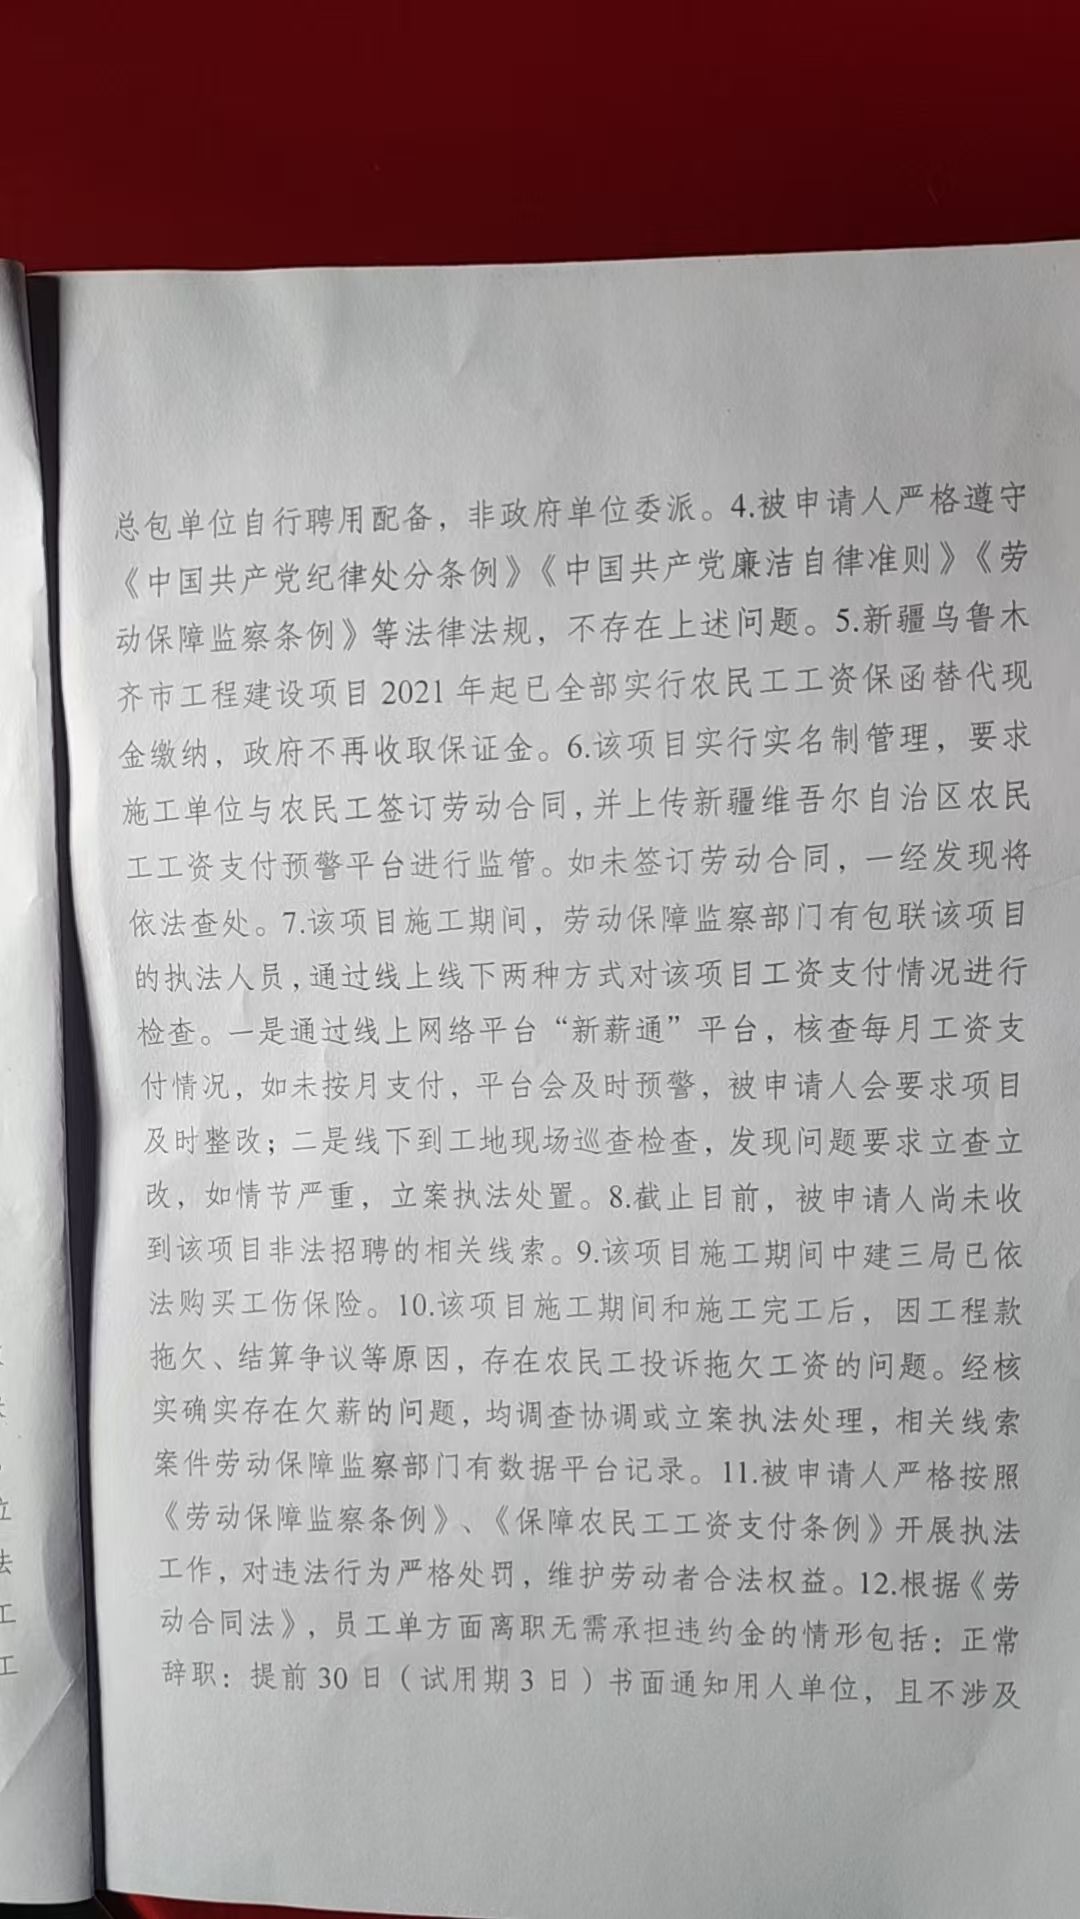 总包单位自行聘用配备，非政府单位委派。4.被申请人严格遵守
《中国共产党纪律处分条例》《中国共产党廉洁自律准则》《劳
动保障监察条例》等法律法规，不存在上述问题。5.新疆乌鲁木
齐市工程建设项目 2021 年起已全部实行农民工工资保函替代现
金缴纳，政府不再收取保证金。6.该项目实行实名制管理，要求
施工单位与农民工签订劳动合同，并上传新疆维吾尔自治区农民
工工资支付预警平台进行监管。如未签订劳动合同，一经发现将
依法查处。7.该项目施工期间，劳动保障监察部门有包联该项目
的执法人员，通过线上线下两种方式对该项目工资支付情况进行
检查。一是通过线上网络平台“新薪通”平台，核查每月工资支
付情况，如未按月支付，平台会及时预警，被申请人会要求项目
及时整改；二是线下到工地现场巡查检查，发现问题要求立查立
改，如情节严重，立案执法处置。8.截止目前，被申请人尚未收
到该项目非法招聘的相关线索。9.该项目施工期间中建三局已依
法购买工伤保险。10.该项目施工期间和施工完工后，因工程款
拖欠、结算争议等原因，存在农民工投诉拖欠工资的问题。经核
实确实存在欠薪的问题，均调查协调或立案执法处理，相关线索
案件劳动保障监察部门有数据平台记录。11.被申请人严格按照
《劳动保障监察条例》、《保障农民工工资支付条例》开展执法
工作，对违法行为严格处罚，维护劳动者合法权益。12.根据《劳
动合同法》，员工单方面离职无需承担违约金的情形包括：正常
辞职：提前 30 日（试用期 3 日）书面通知用人单位，且不涉及
位
法
工
工